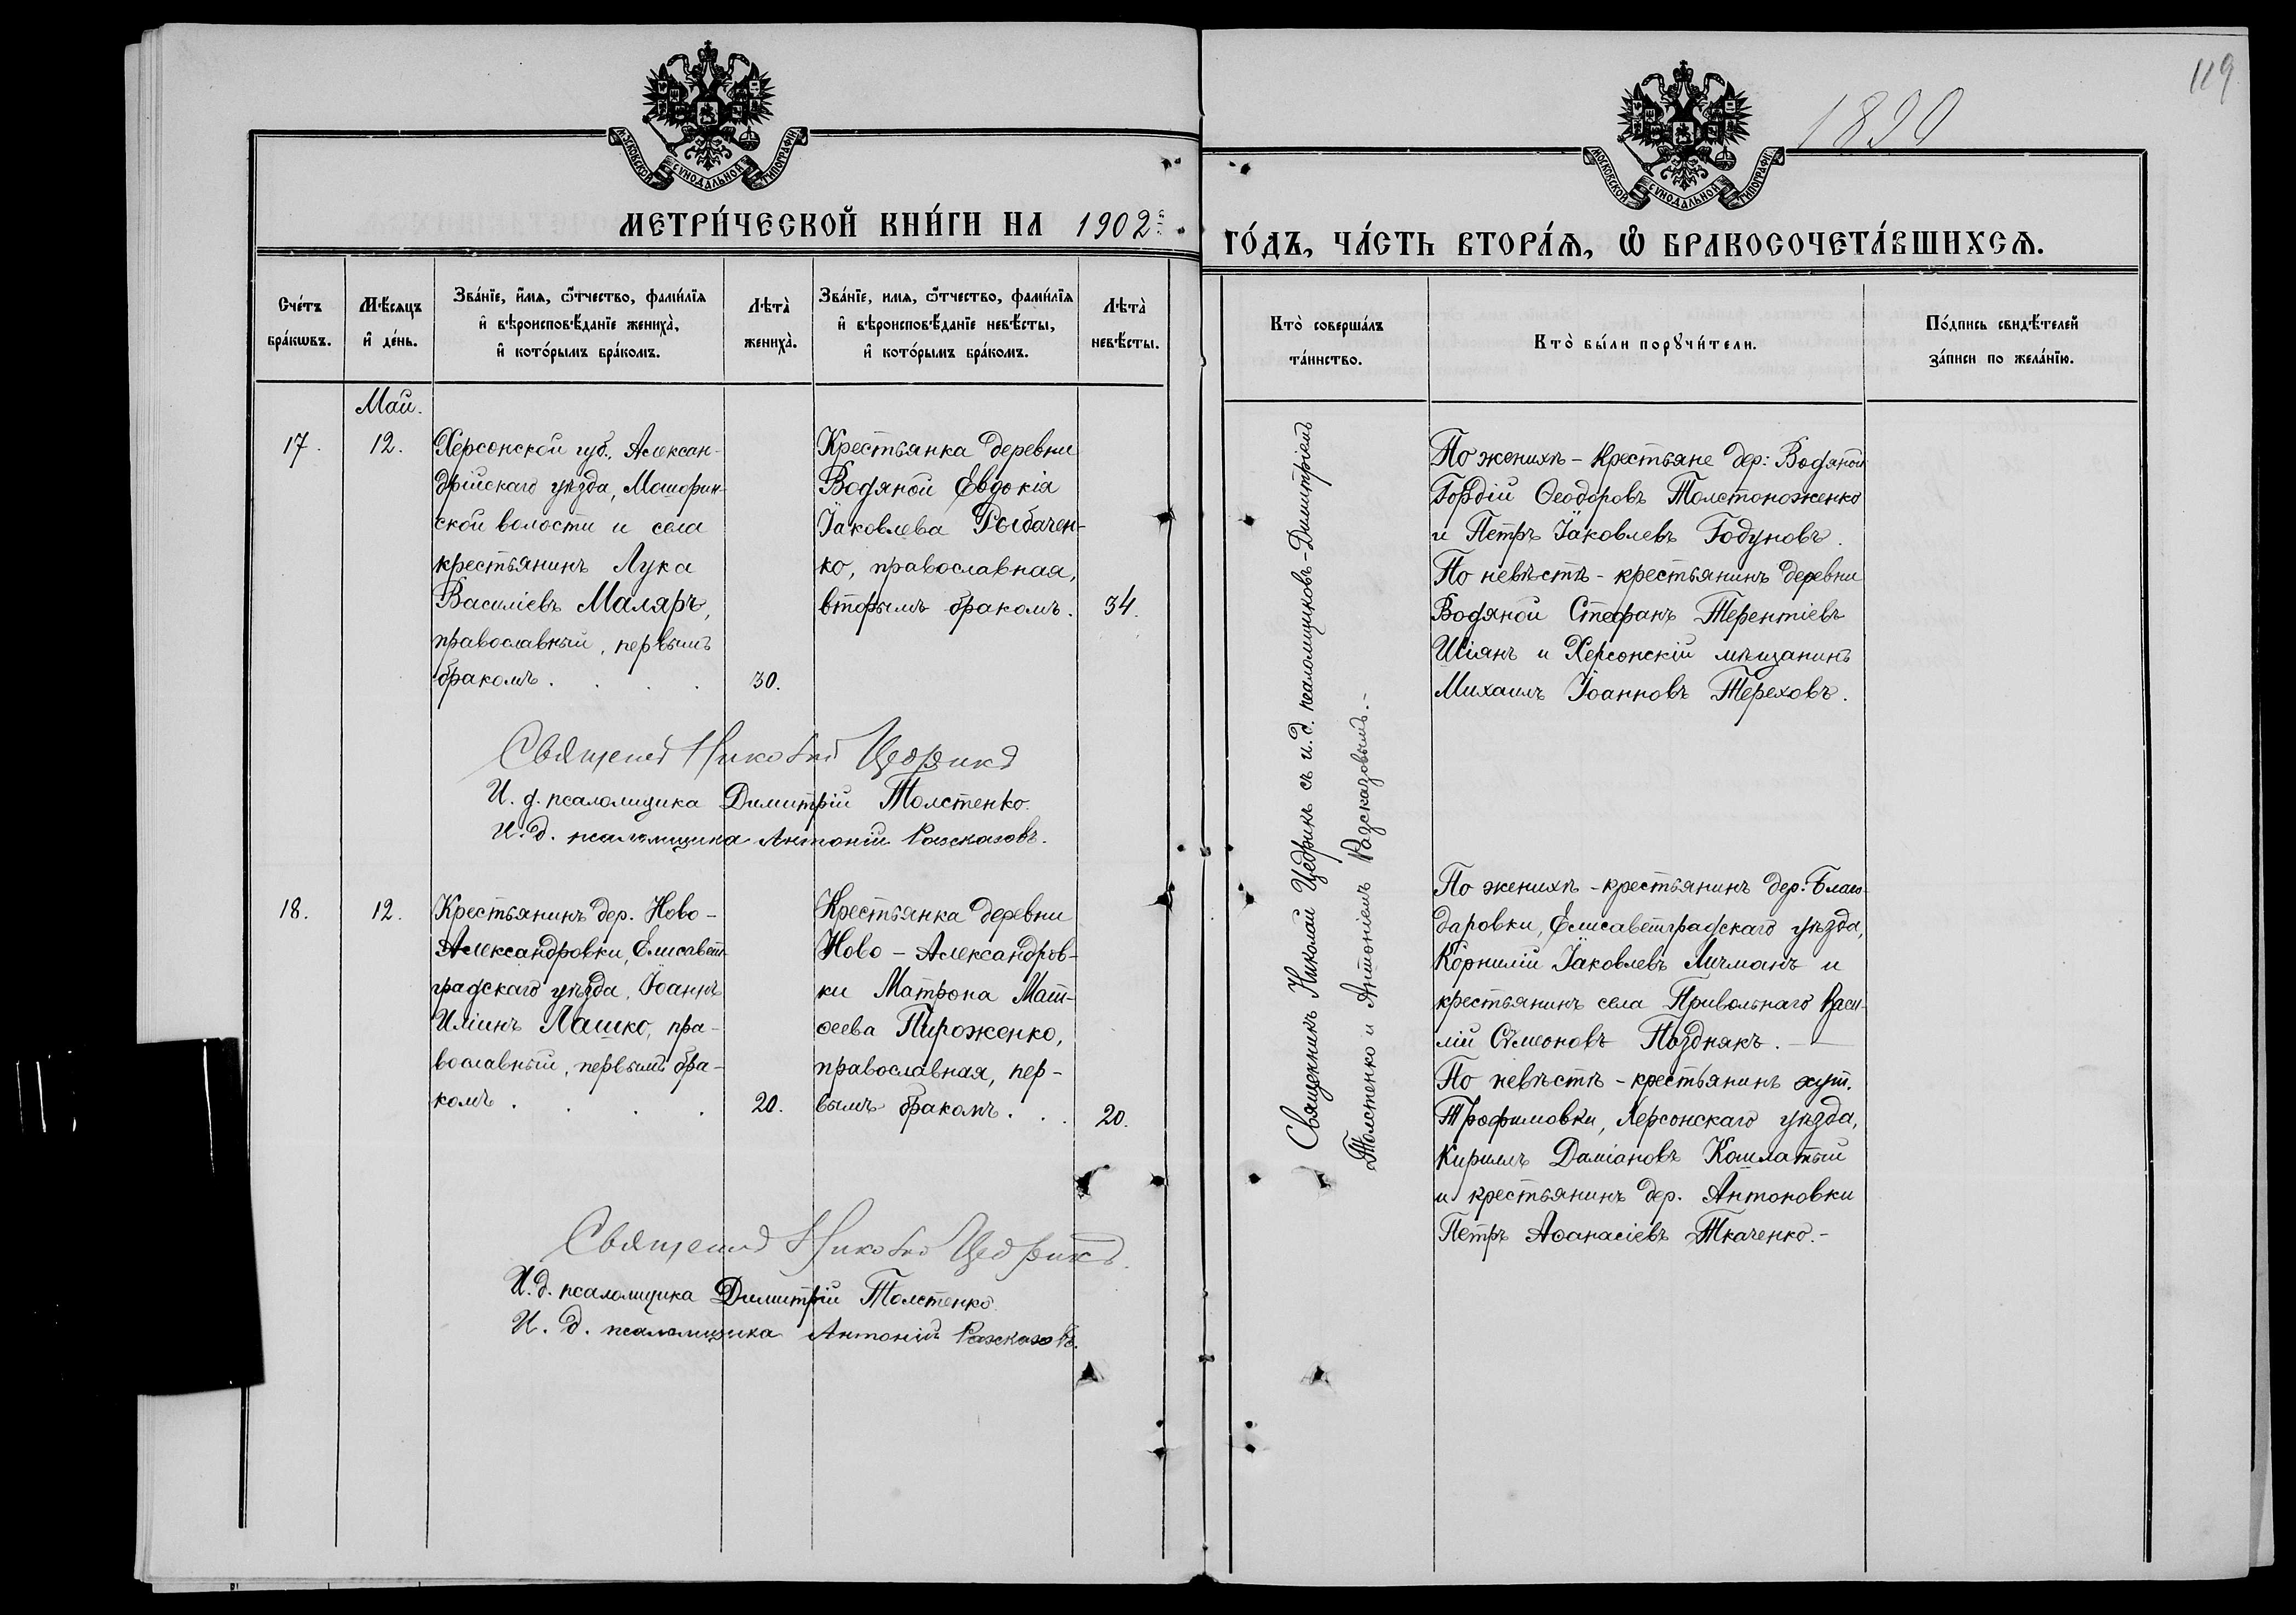 119
1890
МОСКОВСКОЙ СѴНОДАЛЬНОЙ ТИПОГРАФІИ
МОСКОВСКОЙ СѴНОДАЛЬНОЙ ТИПОГРАФІИ
МЕТРИ́ЧЕСКОЙ КНИ́ГИ НА 1902 г.
ГО́ДЪ, ЧА́СТЬ ВТОРА́Ѧ, Ѿ БРАКОСОЧЕТА́ВШИХСѦ.
Сче́тъ
бра́кѡвъ.
Мѣ́сяцъ
и҆ де́нь.
Зва́нїе, и҆́мѧ, ѻ҆́тчество, фами́лїѧ
и҆ вѣроисповѣ́данїе жениха̀,
и҆ кото́рымъ бра́комъ.
Лѣта̀
жениха̀.
Зва́нїе, имѧ, ѻ҆́тчество, фами́лїѧ
и҆ вѣроисповѣ́данїе невѣ́сты,
и҆ кото́рымъ бра́комъ.
Лѣта̀
невѣ́сты.
Кто̀ соверша́лъ
та́инство.
Кто̀ бы́ли порꙋчи́тели.
По́дпись свидѣ́телей
за́писи по жела́нїю.
Май.
17.
12.
Херсонской губ., Алексан-
дрійскаго уѣзда, Мошорин-
ской волости и села
крестьянинъ Лука
Василіевъ Маляръ,
православный, первымъ
бракомъ . . . .
30.
Крестьянка деревни
Водяной Евдокія
Іаковлева Рыбачен-
ко, православная,
вторымъ бракомъ.
34.
Священникъ Николай Цедрикъ съ и. д. псаломщиковъ - Димитріемъ
Толстенко и Антоніемъ Разсказовымъ. -
По женихѣ - крестьяне дер: Водяной
Гордій Ѳеодоровъ Толстоноженко
и Петръ Іаковлевъ Годуновъ.
По невѣстѣ - крестьянинъ деревни
Водяной Стефанъ Терентіевъ
Шіянъ и Херсонскій мѣщанинъ
Михаилъ Іоанновъ Тереховъ.
Священникъ Николай Цедрикъ
И. д. псаломщика Димитрій Толстенко.
И. д. псаломщика Антоній Разсказовъ.
18.
12.
Крестьянинъ дер. Ново-
Александровки, Елисавет-
градскаго уѣзда, Іоаннъ
Иліинъ Лашко, пра-
вославный, первымъ бра-
комъ . . . .
20.
Крестьянка деревни
Ново - Александров-
ки Матрона Мат-
ѳеева Пироженко,
православная, пер-
вымъ бракомъ . .
20.
По женихѣ - крестьянинъ дер. Благо-
даровки, Елисаветградскаго уѣзда,
Корнилій Іаковлевъ Личманъ и
крестьянинъ села Привольнаго Васи-
лій Сѵмеоновъ Позднякъ. —
По невѣстѣ - крестьянинъ хут.
Трофимовки, Херсонскаго уѣзда,
Кириллъ Даміановъ Кошлатый
и крестьянинъ дер. Антоновки
Петръ Аѳанасіевъ Ткаченко. -
Священникъ Николай Цедрикъ.
И. д. псаломщика Димитрій Толстенко.
И. д. псаломщика Антоній Разсказовъ.